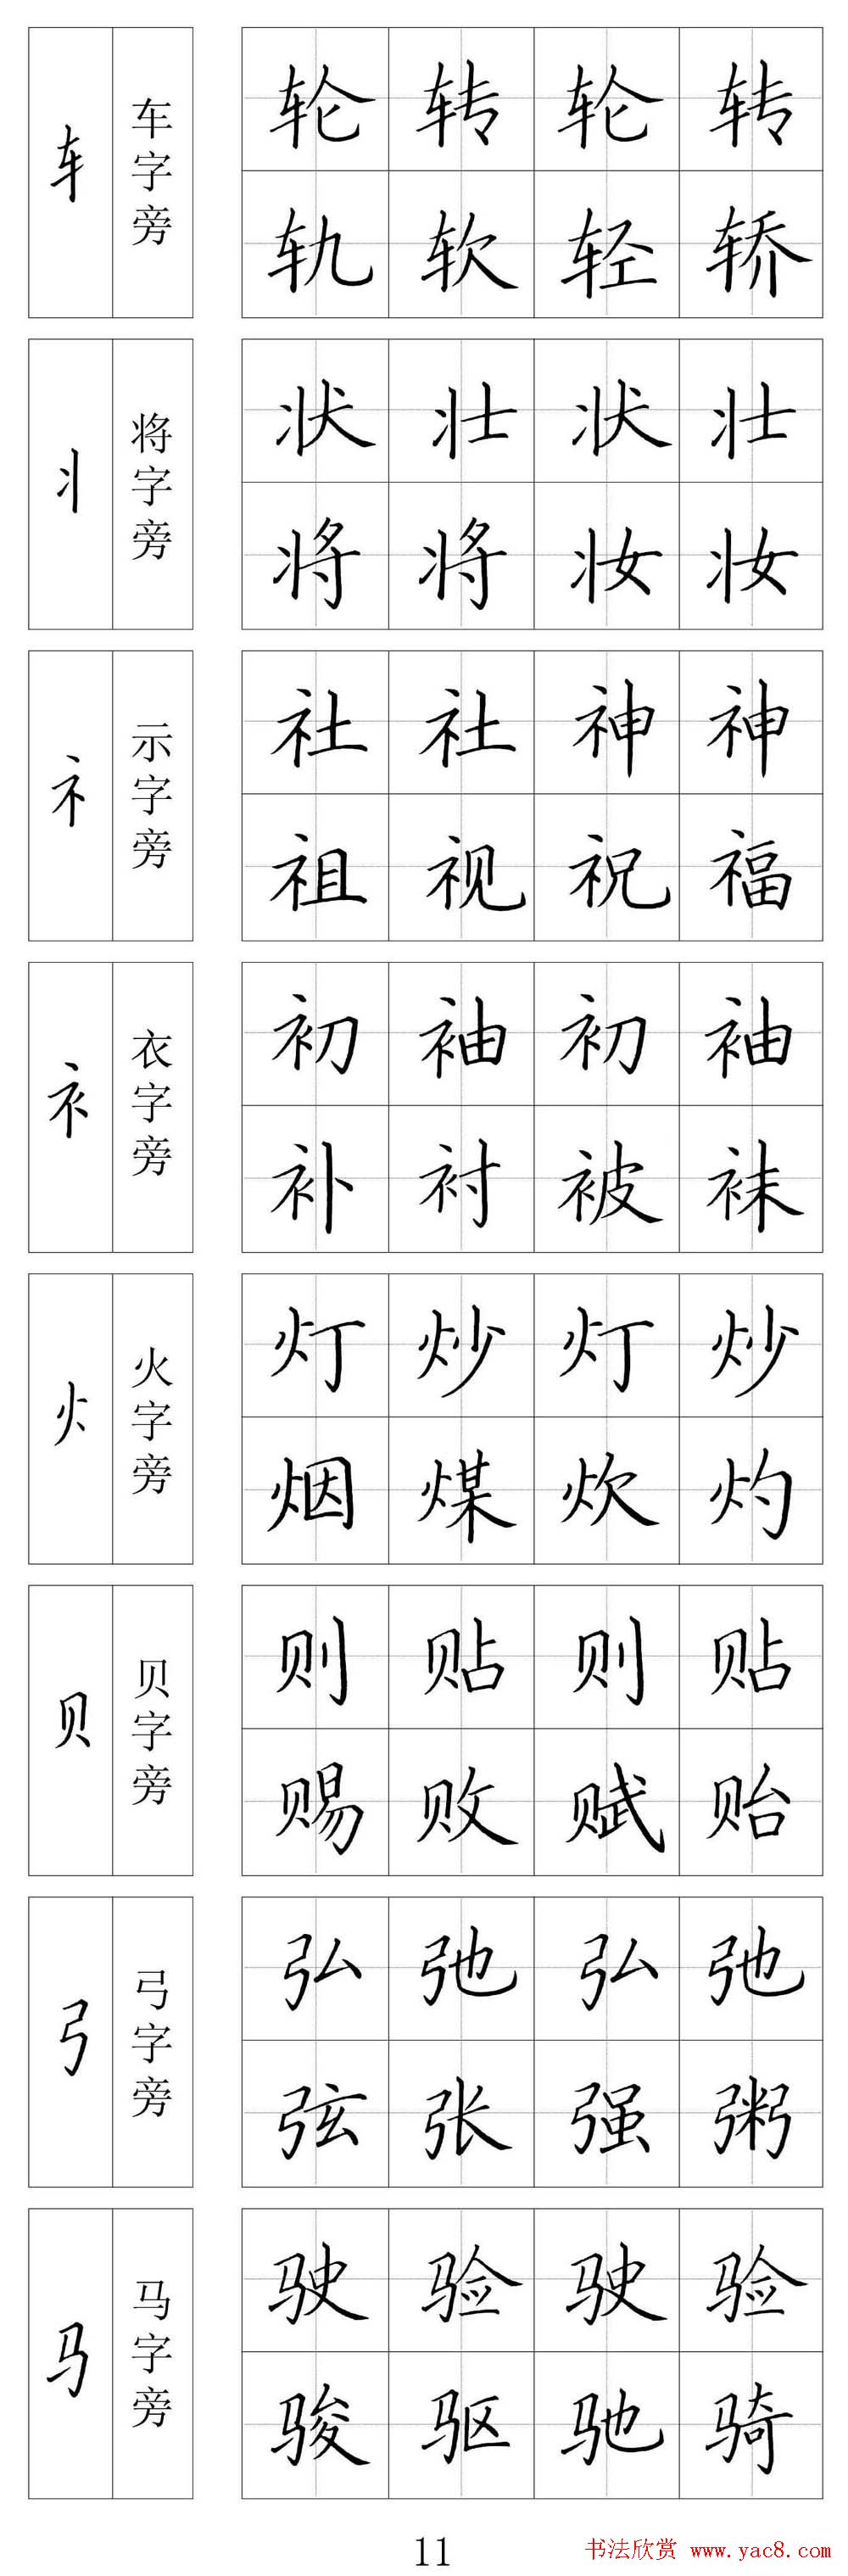 车 车字旁 轮 转 轮 转
轨 软 轻 轿
丬 将字旁 状 壮 状 壮
将 将 妆 妆
礻 示字旁 社 社 神 神
祖 视 祝 福
衤 衣字旁 初 袖 初 袖
补 衬 被 袜
火 火字旁 灯 炒 灯 炒
烟 煤 炊 灼
贝 贝字旁 则 贴 则 贴
赐 败 赋 贻
弓 弓字旁 弘 弛 弘 弛
弦 张 强 粥
马 马字旁 驶 验 驶 验
骏 驱 驰 骑
11
书法欣赏 www.yac8.com